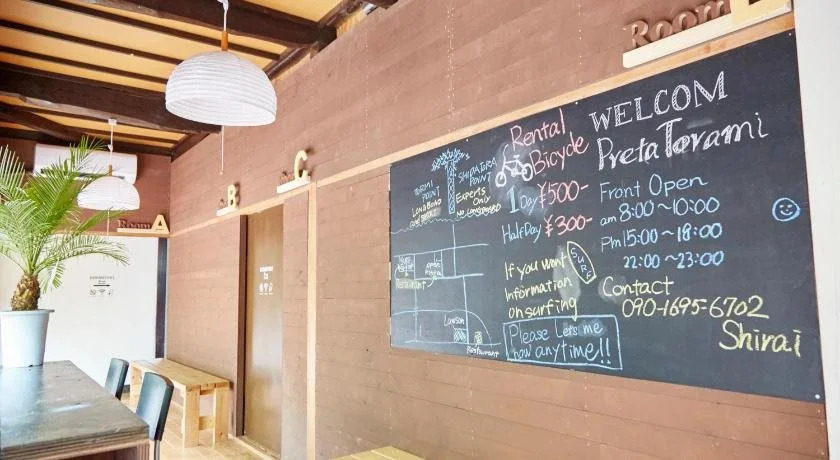 Room
C
B
Room A
WELCOM
PretaTorami
Rental
Bicycle
1Day ¥500-
HalfDay ¥300-
TORAMI
POINT
LONG BOARD
SHIDASHITA
POINT
Experts
Only
NO LONGBOARD
Front Open
am 8:00~10:00
Pm 15:00~18:00
22:00~23:00
If you want
Information
on surfing
SURF
Please Let's me
know anytime!!
Contact
090-1695-6702
Shirai
Restaurant
Lawson
Restaurant